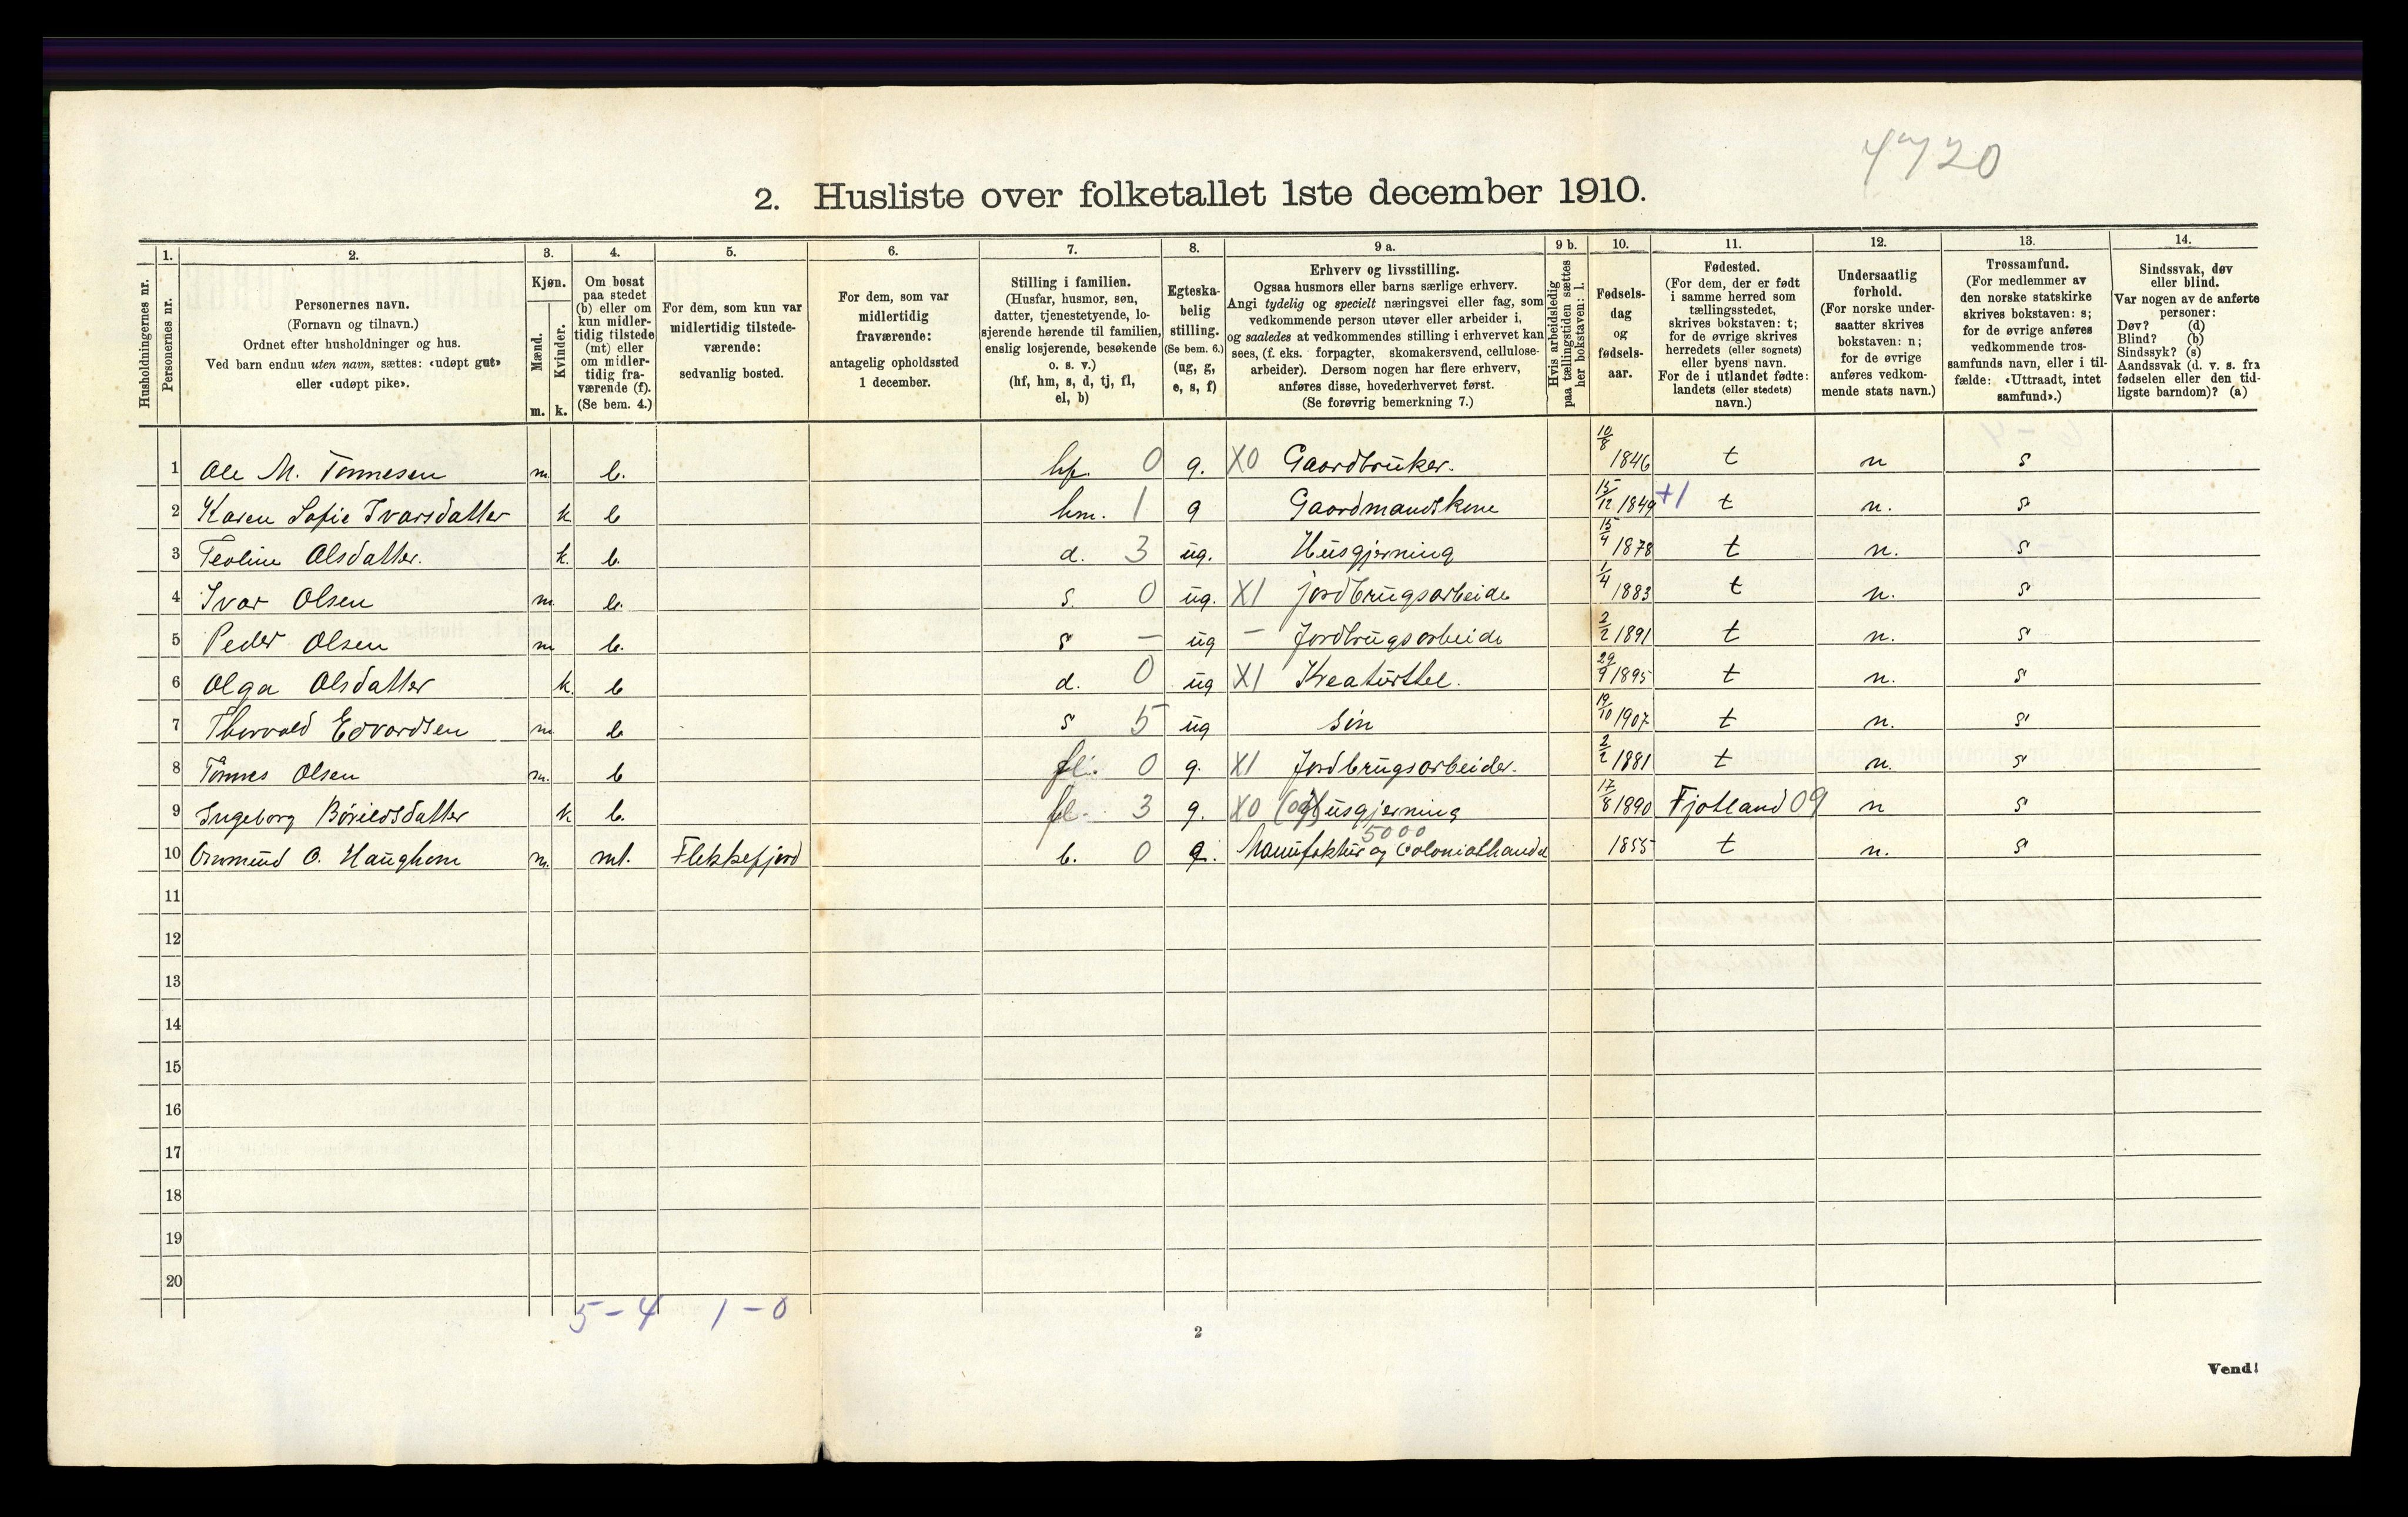 4720
2. Husliste over folketallet 1ste december 1910.
Husholdningernes nr.
1. Personernes nr.
2. Personernes navn.
(Fornavn og tilnavn.)
Ordnet efter husholdninger og hus.
Ved barn endnu uten navn, sættes: «udøpt gut»
eller «udøpt pike».
3. Kjøn.
Mænd. m.
Kvinder. k.
4. Om bosat
paa stedet
(b) eller om
kun midler-
tidig tilstede
(mt) eller
om midler-
tidig fra-
værende (f).
(Se bem. 4.)
5. For dem, som kun var
midlertidig tilstede-
værende:
sedvanlig bosted.
6. For dem, som var
midlertidig
fraværende:
antagelig opholdssted
1 december.
7. Stilling i familien.
(Husfar, husmor, søn,
datter, tjenestetyende, lo-
sjerende hørende til familien,
enslig losjerende, besøkende
o. s. v.)
(hf, hm, s, d, tj, fl,
el, b)
8. Egteska-
belig
stilling.
(Se bem. 6.)
(ug, g,
e, s, f)
9 a. Erhverv og livsstilling.
Ogsaa husmors eller barns særlige erhverv.
Angi tydelig og specielt næringsvei eller fag, som
vedkommende person utøver eller arbeider i,
og saaledes at vedkommendes stilling i erhvervet kan
sees, (f. eks. forpagter, skomakersvend, cellulose-
arbeider). Dersom nogen har flere erhverv,
anføres disse, hovederhvervet først.
(Se forøvrig bemerkning 7.)
9 b. Hvis arbeidsledig
paa tællingstiden sættes
her bokstaven: l.
10. Fødsels-
dag
og
fødsels-
aar.
11. Fødested.
(For dem, der er født
i samme herred som
tællingsstedet,
skrives bokstaven: t;
for de øvrige skrives
herredets (eller sognets)
eller byens navn.
For de i utlandet fødte:
landets (eller stedets)
navn.)
12. Undersaatlig
forhold.
(For norske under-
saatter skrives
bokstaven: n;
for de øvrige
anføres vedkom-
mende stats navn.)
13. Trossamfund.
(For medlemmer av
den norske statskirke
skrives bokstaven: s;
for de øvrige anføres
vedkommende tros-
samfunds navn, eller i til-
fælde: «Uttraadt, intet
samfund».)
14. Sindssvak, døv
eller blind.
Var nogen av de anførte
personer:
Døv? (d)
Blind? (b)
Sindssyk? (s)
Aandssvak (d. v. s. fra
fødselen eller den tid-
ligste barndom)? (a)
1 Ole M. Tønnesen m. b. hf. 0 g. X0 Gaardbruker. 10/8 1846 t n s
2 Karen Sofie Ivarsdatter k b hm. 1 g Gaardmandskone 15/12 1849 +1 t n. s
3 Teoline Olsdatter. k. b. d. 3 ug. Husgjerning 15/4 1878 t n. s
4 Ivar Olsen m b. s. 0 ug. X1 jordbrugsarbeide 1/4 1883 t n. s
5 Peder Olsen m b. s – ug – Jordbrugsarbeide 2/2 1891 t n. s
6 Olga Olsdatter k. b d. 0 ug X1 Kreaturstel. 29/9 1895 t n. s
7 Thorvald Edvardsen m b s 5 ug søn 19/10 1907 t n. s
8 Tønnes Olsen m. b fl. 0 g. X1 Jordbrugsarbeider. 2/2 1881 t n. s
9 Ingeborg Børildsdatter k b. fl. 3 g. X0 Husgjerning 17/8 1890 Fjotland 09 n s
5000
10 O. Haughom m. mt. Flekkefjord b. 0 g. Manufaktur og Colonialhandel 1855 t n. s
11
12
13
14
15
16
17
18
19
20
5 – 4 1 – 0
2
Vend!